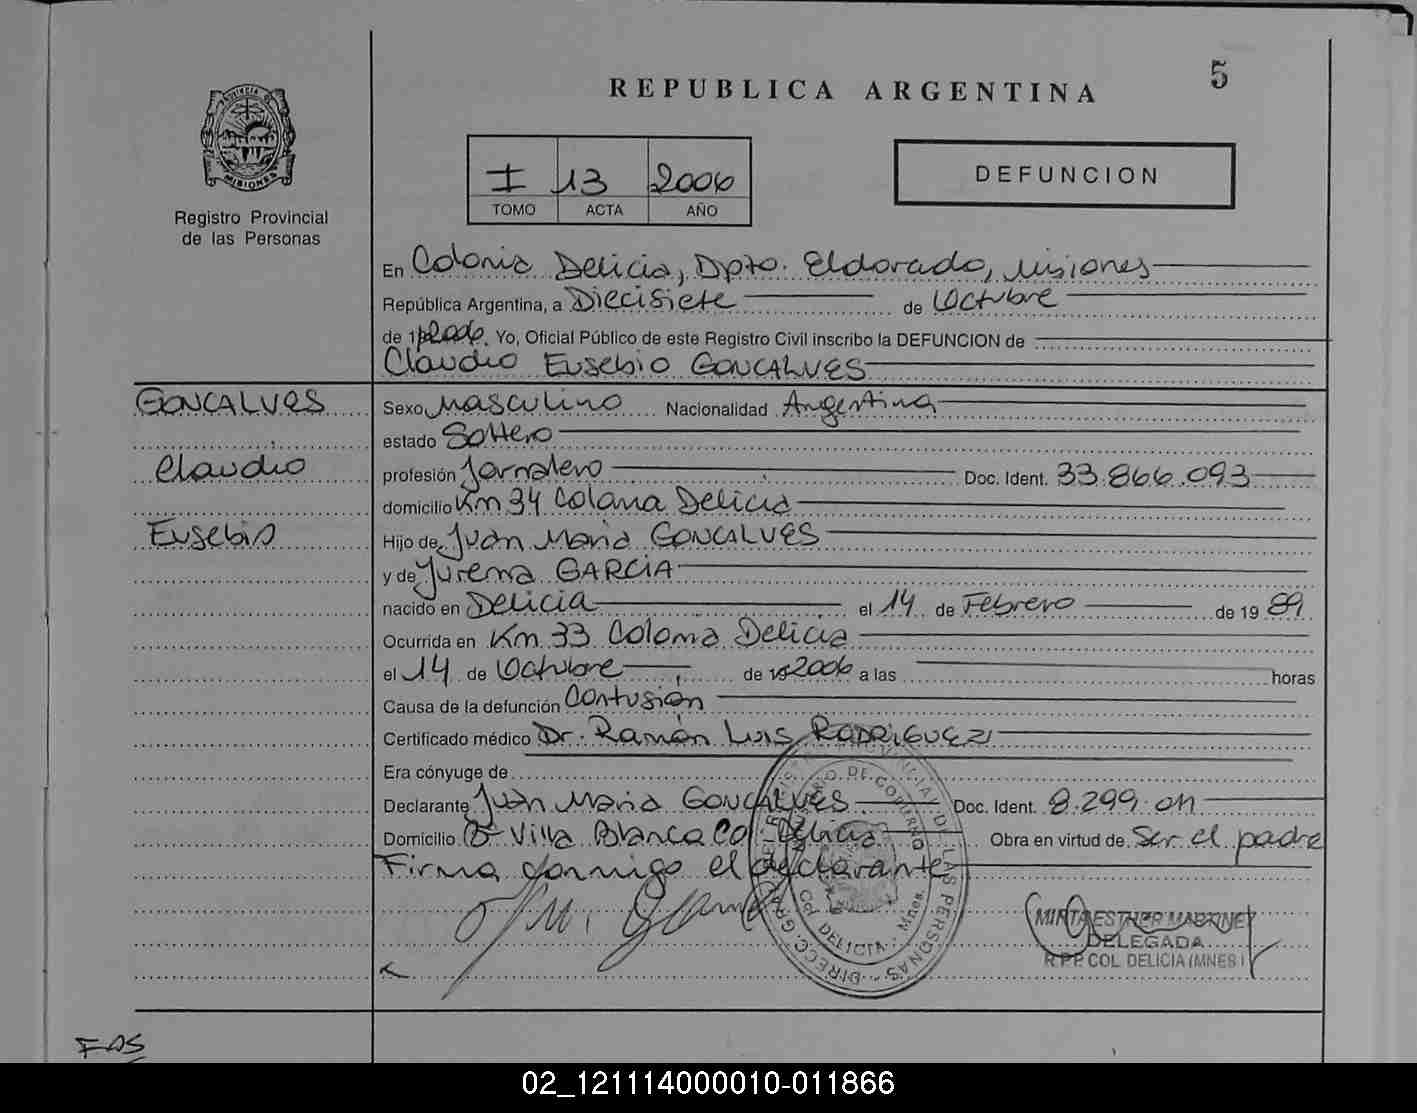 5
REPUBLICA ARGENTINA
PROVINCIA D
MISIONES
Registro Provincial
de las Personas
I 13 2006
TOMO ACTA AÑO
DEFUNCION
En Colonia Delicia, Dpto. Eldorado, Misiones
República Argentina, a Diecisiete de Octubre
de 2006. Yo, Oficial Público de este Registro Civil inscribo la DEFUNCION de
Claudio Eusebio GONCALVES
GONCALVES
Claudio
Eusebio
Sexo Masculino Nacionalidad Argentina
estado Soltero
profesión Jornalero Doc. Ident. 33.866.093
domicilio Km 34 Colonia Delicia
Hijo de Juan Maria GONCALVES
y de Jurema GARCIA
nacido en Delicia el 14 de Febrero de 19 89
Ocurrida en Km. 33 Colonia Delicia
el 14 de Octubre de 2006 a las horas
Causa de la defunción Contusión
Certificado médico Dr. Ramón Luis RODRIGUEZ
Era cónyuge de
Declarante Juan Maria GONCALVES Doc. Ident. 8.299.011
Domicilio Bº Villa Blanca Col Delicia Obra en virtud de Ser el padre
Firma conmigo el declarante
DIRECC. GRAL. DEL REGISTRO PROVINCIAL DE LAS PERSONAS
MINISTERIO DE GOBIERNO
Col. DELICIA - Mnes.
MIRTA ESTHER MARTINEZ
DELEGADA
R.P.P. COL. DELICIA (MNES)
FDS
02_121114000010-011866